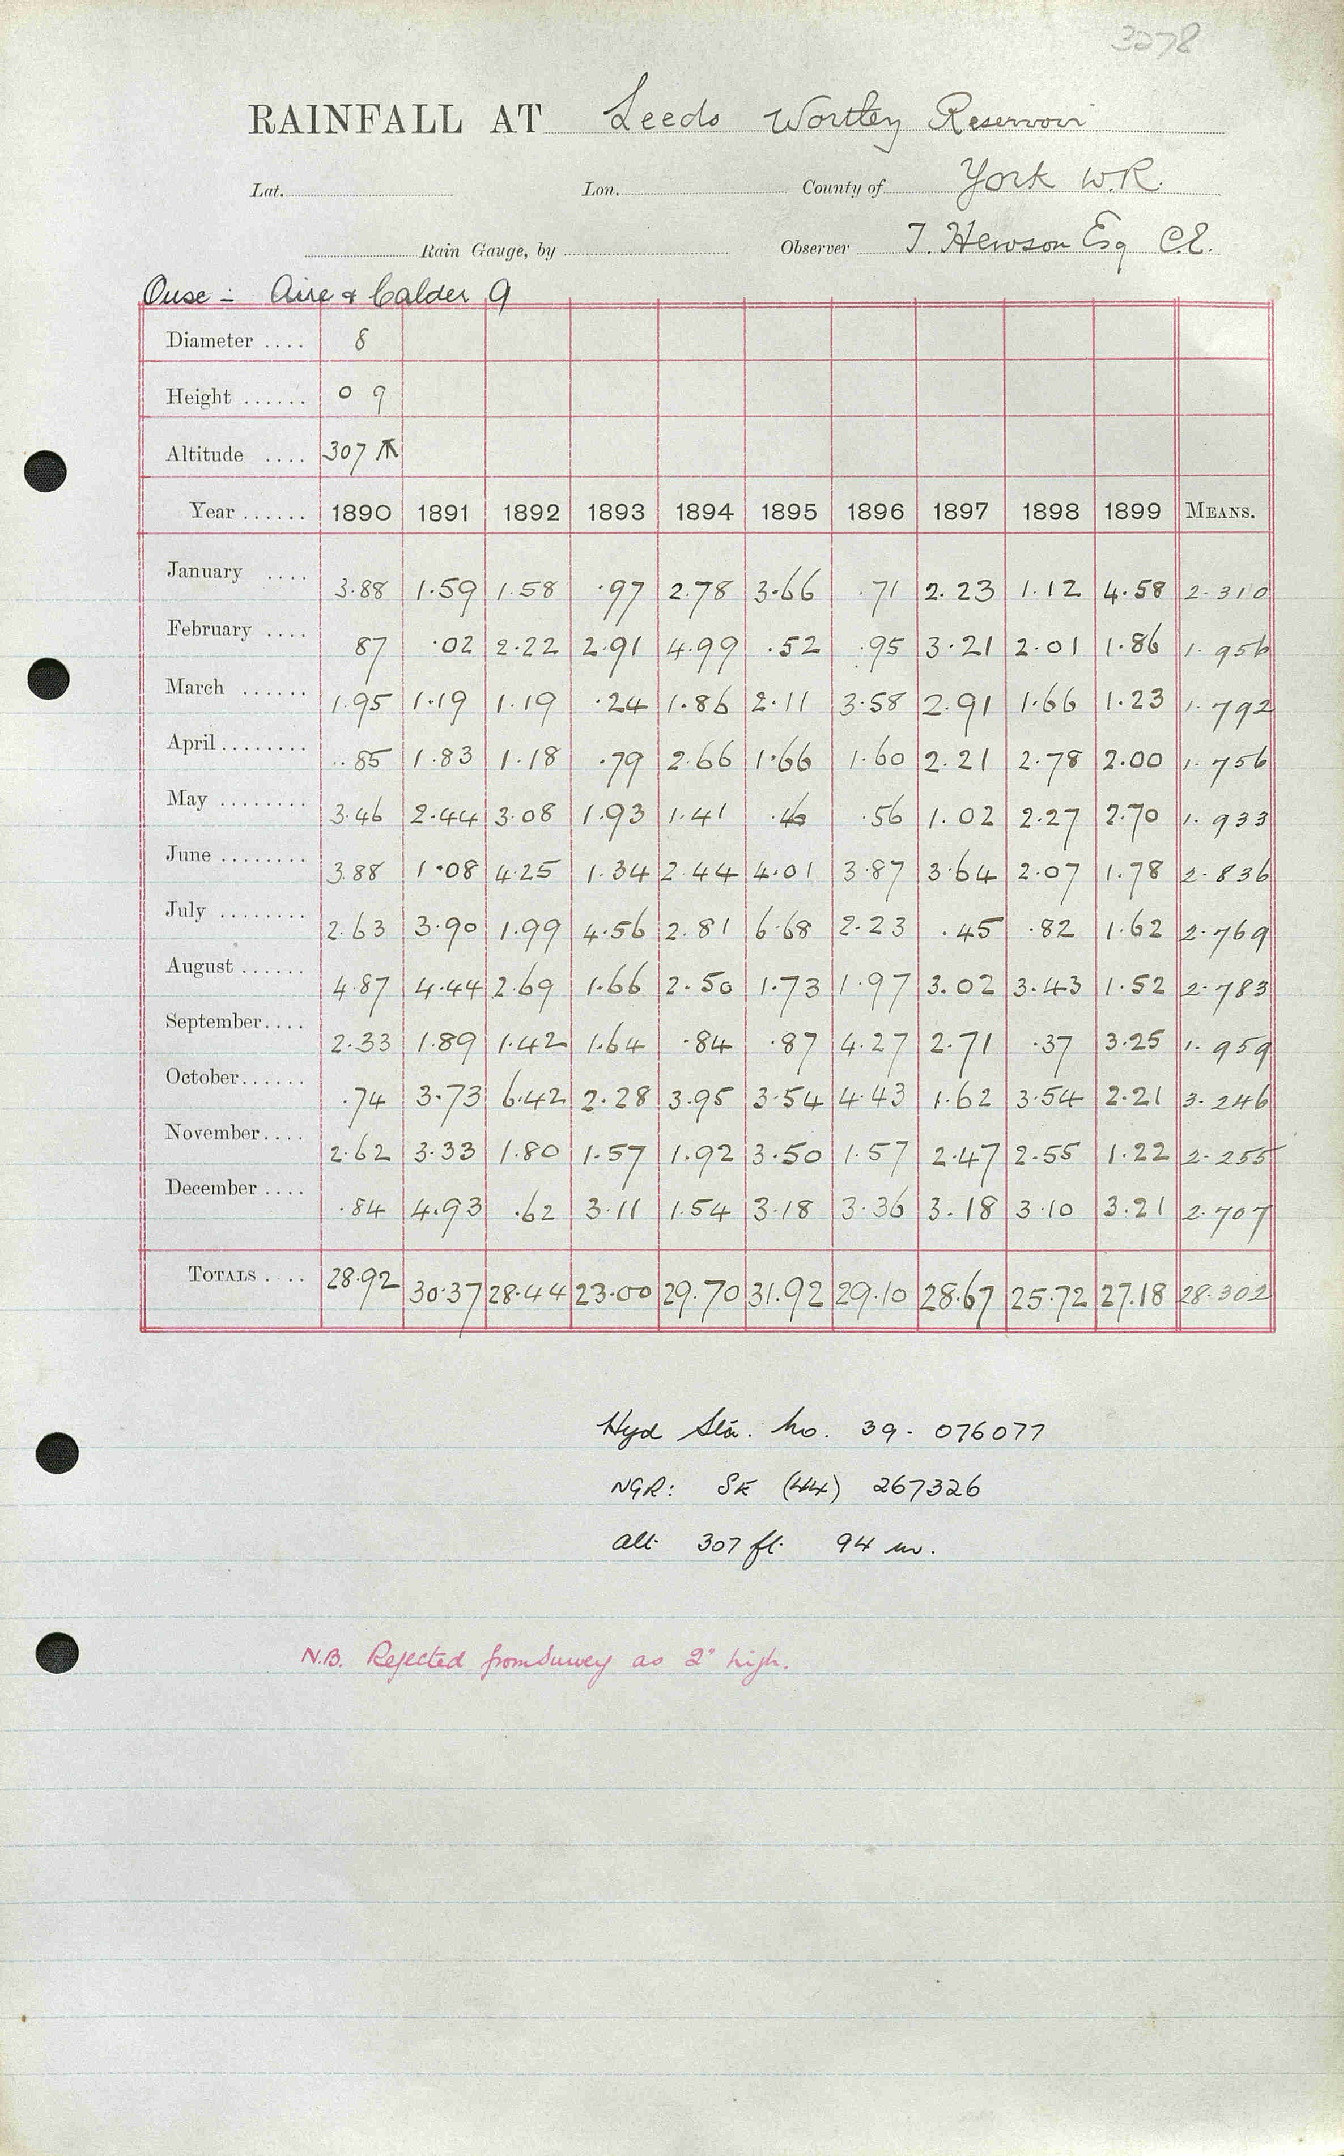 3278
RAINFALL AT Leeds Wortley Reservoir
Lat. Lon. County of York W.R.
Rain Gauge, by Observer T. Hewson Esq C.E.
Ouse :- Aire & Calder 9
Diameter .... 8
Height ...... 0 9
Altitude .... 307
Year ...... 1890 1891 1892 1893 1894 1895 1896 1897 1898 1899 MEANS.
January .... 3.88 1.59 1.58 .97 2.78 3.66 .71 2.23 1.12 4.58 2.310
February .... 87 .02 2.22 2.91 4.99 .52 .95 3.21 2.01 1.86 1.956
March ...... 1.95 1.19 1.19 .24 1.86 2.11 3.58 2.91 1.66 1.23 1.792
April ........ .85 1.83 1.18 .79 2.66 1.66 1.60 2.21 2.78 2.00 1.756
May ........ 3.46 2.44 3.08 1.93 1.41 .46 .56 1.02 2.27 2.70 1.933
June ........ 3.88 1.08 4.25 1.34 2.44 4.01 3.87 3.64 2.07 1.78 2.836
July ........ 2.63 3.90 1.99 4.56 2.81 6.68 2.23 .45 .82 1.62 2.769
August ...... 4.87 4.44 2.69 1.66 2.50 1.73 1.97 3.02 3.43 1.52 2.783
September .... 2.33 1.89 1.42 1.64 .84 .87 4.27 2.71 .37 3.25 1.959
October ...... .74 3.73 6.42 2.28 3.95 3.54 4.43 1.62 3.54 2.21 3.246
November .... 2.62 3.33 1.80 1.57 1.92 3.50 1.57 2.47 2.55 1.22 2.255
December .... .84 4.93 .62 3.11 1.54 3.18 3.36 3.18 3.10 3.21 2.707
TOTALS .... 28.92 30.37 28.44 23.00 29.70 31.92 29.10 28.67 25.72 27.18 28.302
Hyd Sta. No. 39- 076077
NGR: SE (44) 267326
Alt 307 ft. 94 m.
N.B. Rejected from Survey as 2" high.